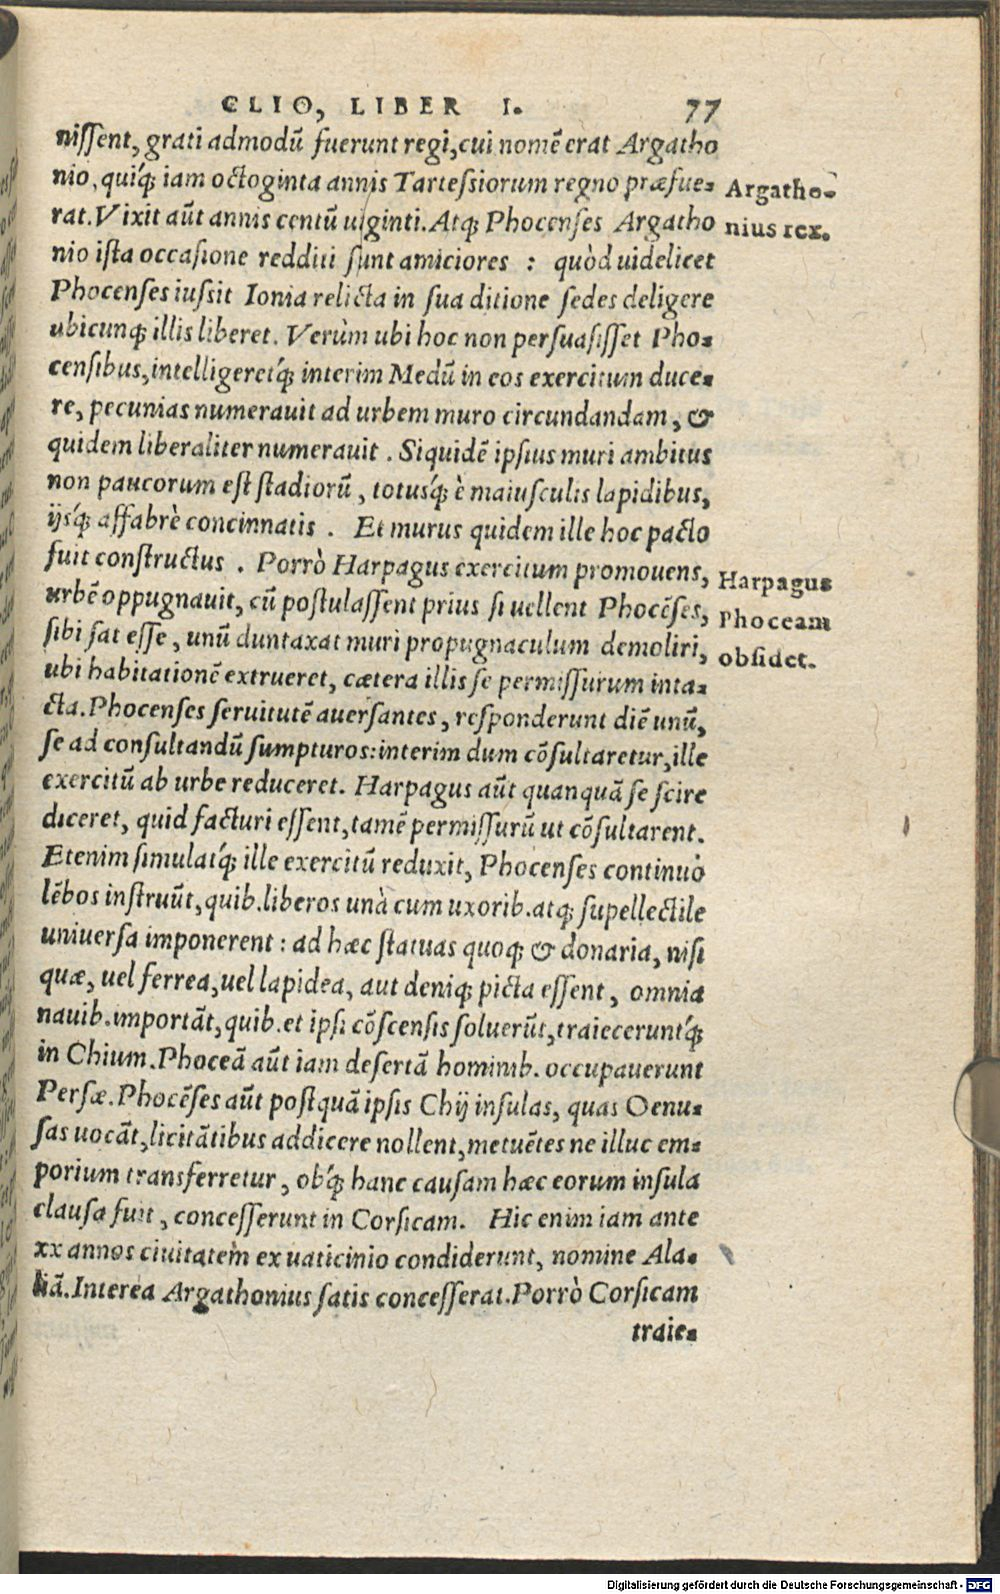 CLIO, LIBER I. 77
niſſent, grati admodũ fuerunt regi, cui nomẽ erat Argatho
nio, quiq́; iam octoginta annis Tarteſsiorum regno præfue-
rat. Vixit aũt annis centũ uiginti. Atq; Phocenſes Argatho
nio iſta occaſione redditi ſunt amiciores : quòd uidelicet
Phocenſes iuſsit Ionia relicta in ſua ditione ſedes deligere
ubicunq; illis liberet. Verùm ubi hoc non perſuaſiſſet Pho-
cenſibus, intelligeretq́; interim Medũ in eos exercitum duce-
re, pecunias numerauit ad urbem muro circundandam, &
quidem liberaliter numerauit. Siquidẽ ipſius muri ambitus
non paucorum eſt ſtadiorũ, totusq́; è maiuſculis lapidibus,
ijsq́; affabrè concinnatis. Et murus quidem ille hoc pacto
fuit conſtructus. Porrò Harpagus exercitum promouens,
urbẽ oppugnauit, cũ poſtulaſſent prius ſi uellent Phocẽſes,
ſibi ſat eſſe, unũ duntaxat muri propugnaculum demoliri,
ubi habitationẽ extrueret, cætera illis ſe permiſſurum inta-
cta. Phocenſes ſeruitutẽ auerſantes, reſponderunt diẽ unũ,
ſe ad conſultandũ ſumpturos: interim dum cõſultaretur, ille
exercitũ ab urbe reduceret. Harpagus aũt quanquã ſe ſcire
diceret, quid facturi eſſent, tamẽ permiſſurũ ut cõſultarent.
Etenim ſimulatq́; ille exercitũ reduxit, Phocenſes continuò
lẽbos inſtruũt, quib. liberos unà cum uxorib. atq; ſupellectile
uniuerſa imponerent: ad hæc ſtatuas quoq; & donaria, niſi
quæ, uel ferrea, uel lapidea, aut deniq; picta eſſent, omnia
nauib. importãt, quib. et ipſi cõſcenſis ſoluerũt, traieceruntq́;
in Chium. Phoceã aũt iam deſertã hominib. occupauerunt
Perſæ. Phocẽſes aũt poſtquã ipſis Chij inſulas, quas Oenu-
ſas uocãt, licitãtibus addicere nollent, metuẽtes ne illuc em-
porium transferretur, obq́; hanc cauſam hæc eorum inſula
clauſa fuit, conceſſerunt in Corſicam. Hic enim iam ante
xx annos ciuitatem ex uaticinio condiderunt, nomine Ala-
liã. Interea Argathonius ſatis conceſſerat. Porrò Corſicam
traie-
Argatho-
nius rex.
Harpagus
Phoceam
obſidet.
Digitalisierung gefördert durch die Deutsche Forschungsgemeinschaft - DFG